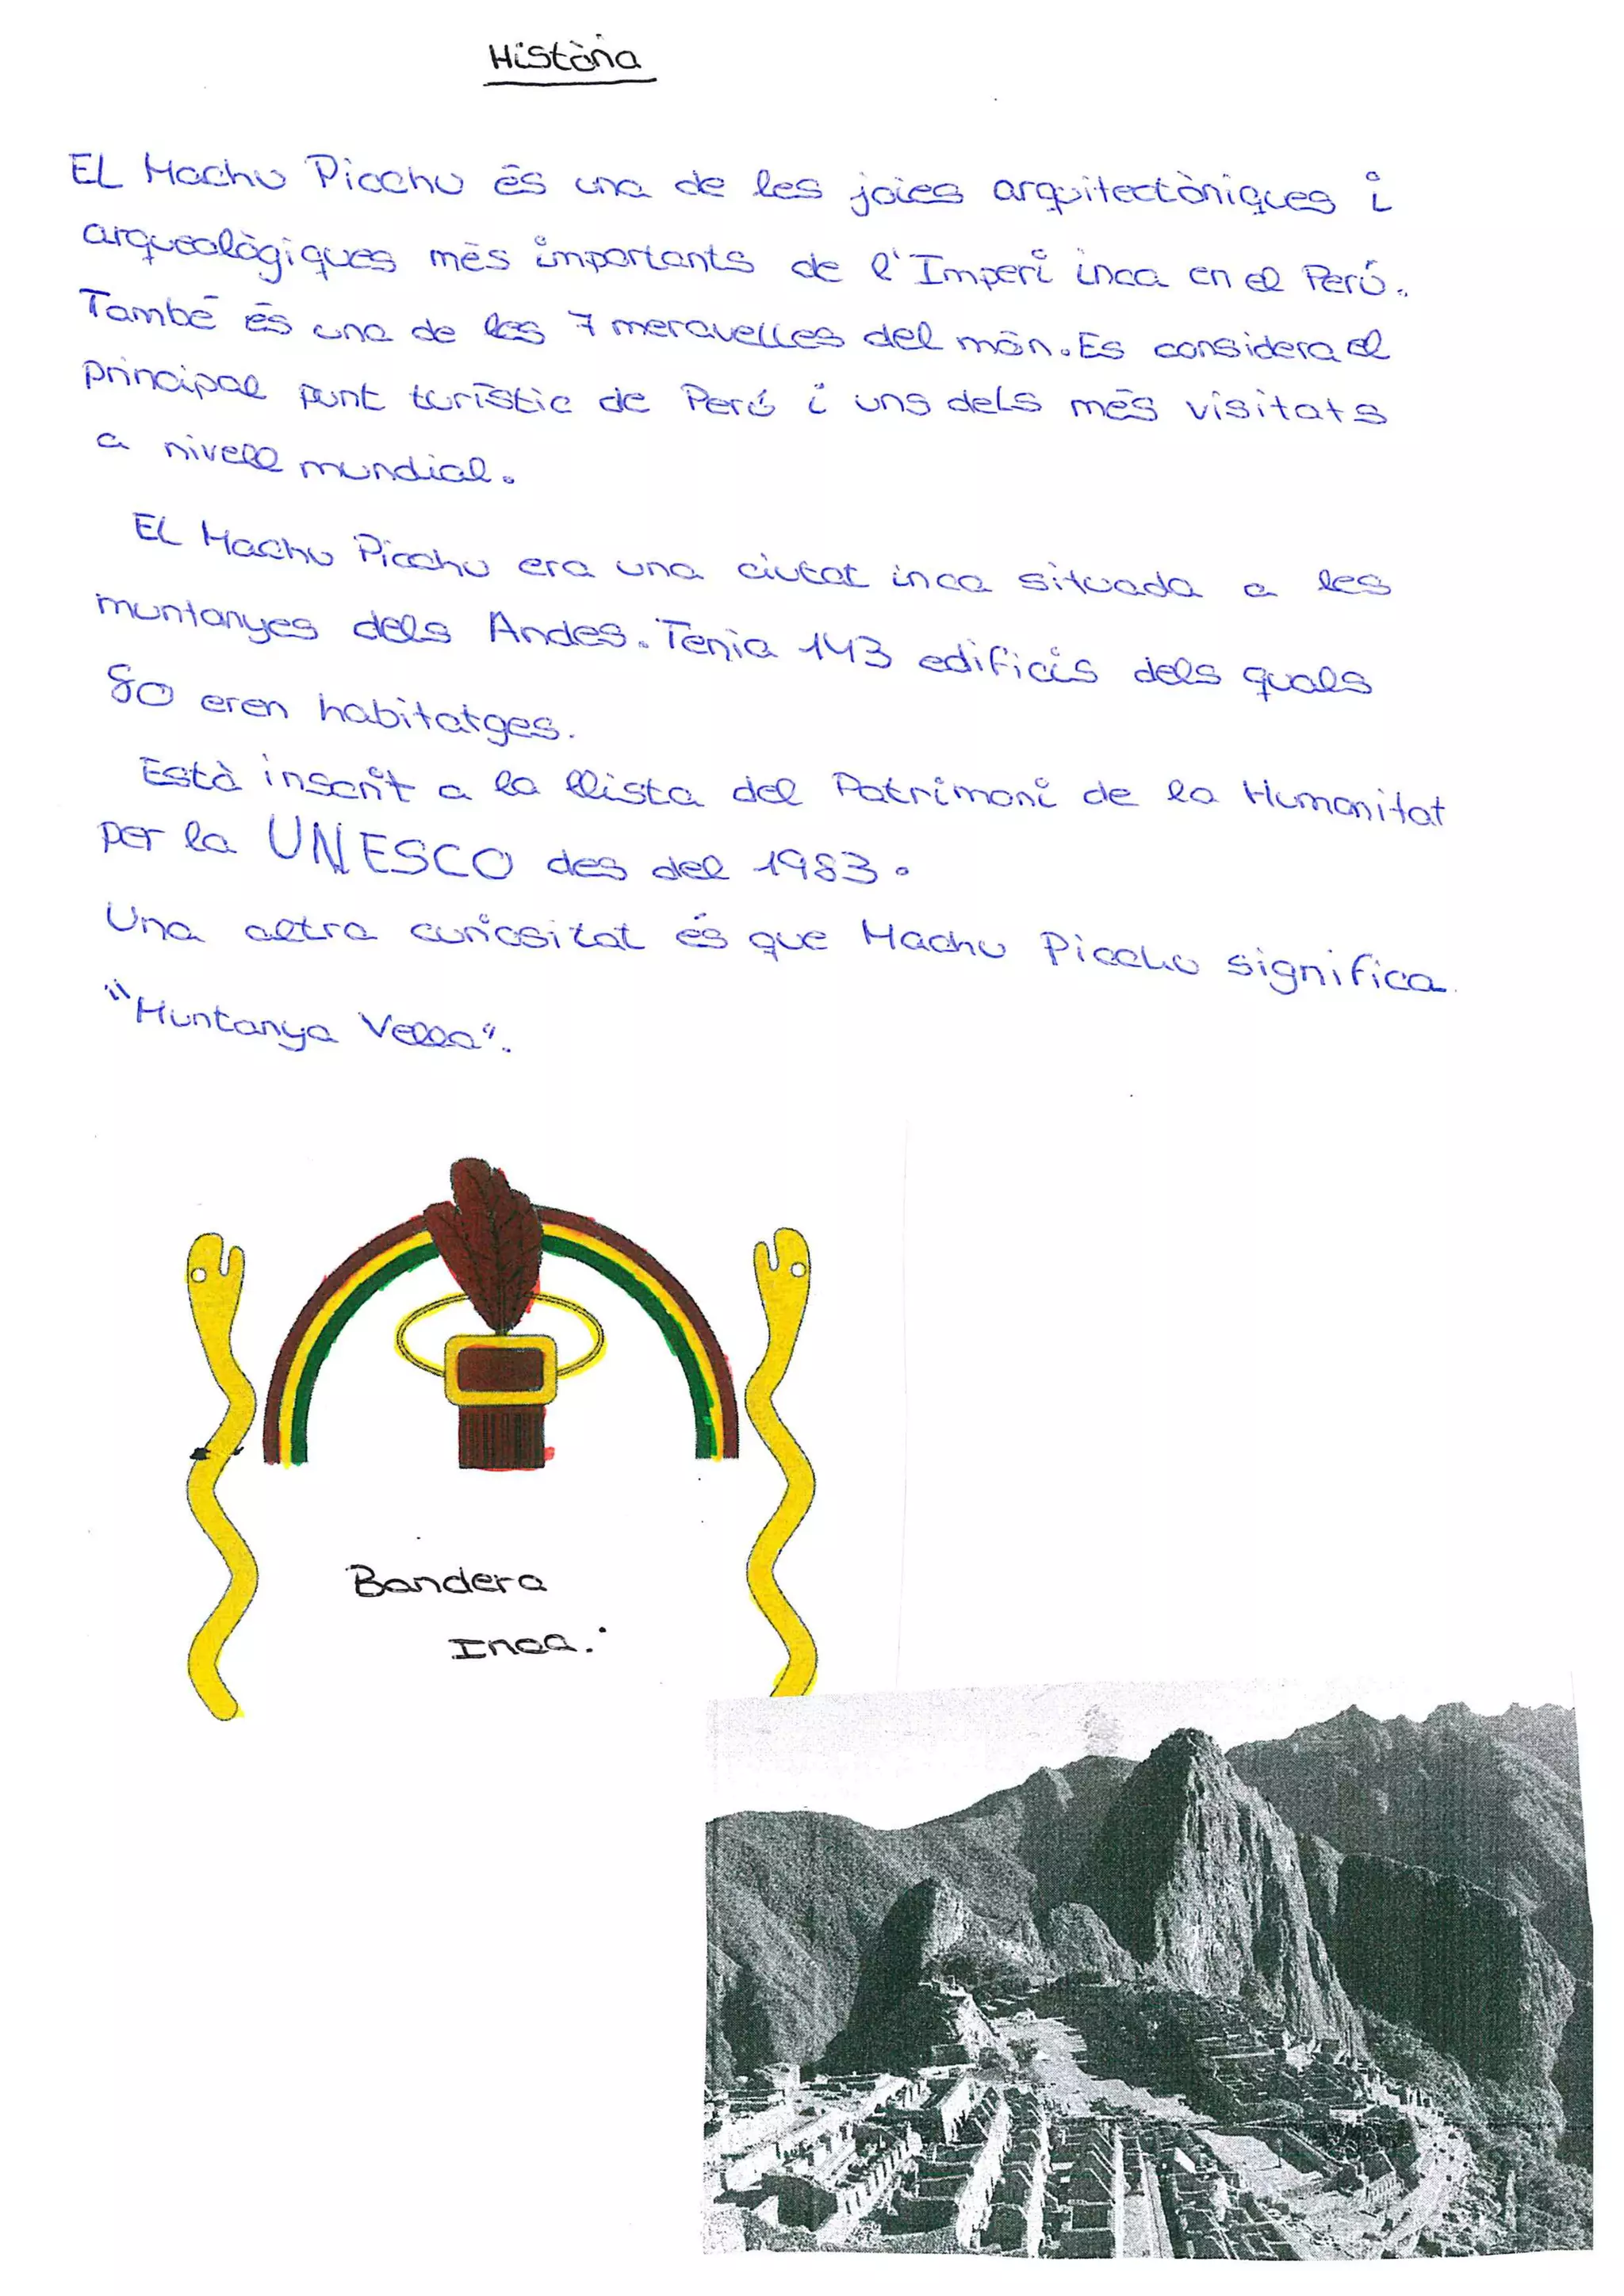 Història
EL Machu Picchu és una de les joies arquitectòniques i
arqueològiques més importants de l'Imperi inca en el Perú.
També és una de les 7 meravelles del món. Es considera el
principal punt turístic de Perú i uns dels més visitats
a nivell mundial.
EL Machu Picchu era una ciutat inca situada a les
muntanyes dels Andes. Tenia 143 edificis dels quals
80 eren habitatges.
Està inscrit a la llista del Patrimoni de la Humanitat
per la UNESCO des del 1983.
Una altra curiositat és que Machu Picchu significa
"Muntanya Vella".
Bandera
Inca.